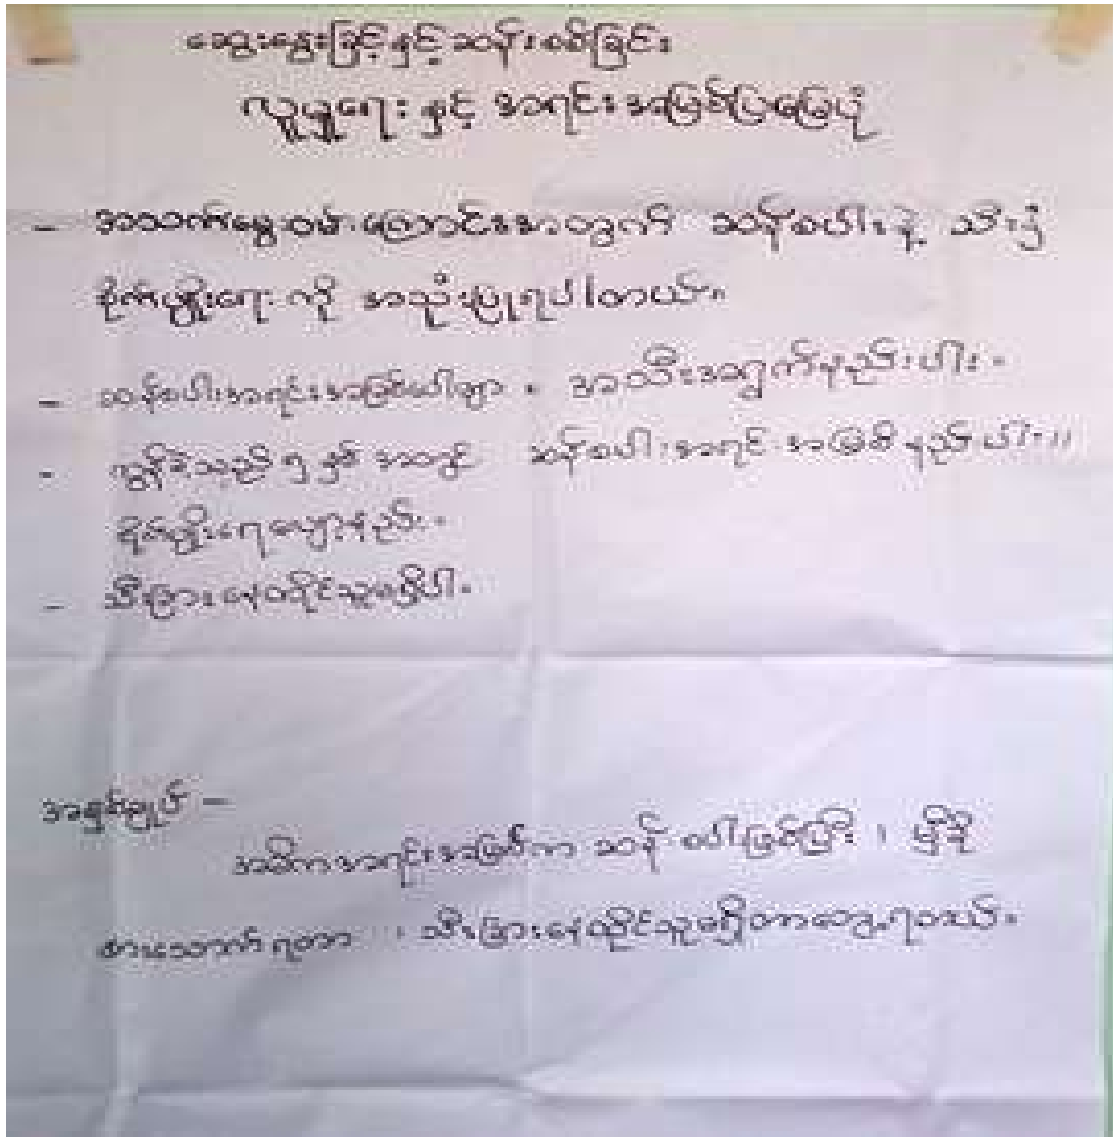 ဆွေးနွေးခြင်းနှင့်ဆန်းစစ်ခြင်း
လူမှုရေး နှင့် အရင်းအမြစ်ပြမြေပုံ
- အသက်မွေးဝမ်းကြောင်းအတွက် ဆန်စပါးနဲ့ သီးနှံ
စိုက်ပျိုးရေး ကို အသုံးပြုရပါတယ်။
- ဆန်စပါးအရင်းအမြစ်ပေါများ ။ အသီးအရွက်နည်းပါး ။
- လွန်ခဲ့သည့် ၅ နှစ် အတွင်း ဆန်စပါးအရင်းအမြစ် နည်းပါး။
စိုက်ပျိုးရေလျော့နည်း ။
- သီးခြားနေထိုင်သူမရှိပါ ။
အနှစ်ချုပ် -
အဓိကအရင်းအမြစ်က ဆန် စပါးဖြစ်ပြီး ၊
စားသောက်ရတာ ၊ သီးခြားနေထိုင်သူမရှိတာတွေ့ရတယ် ။